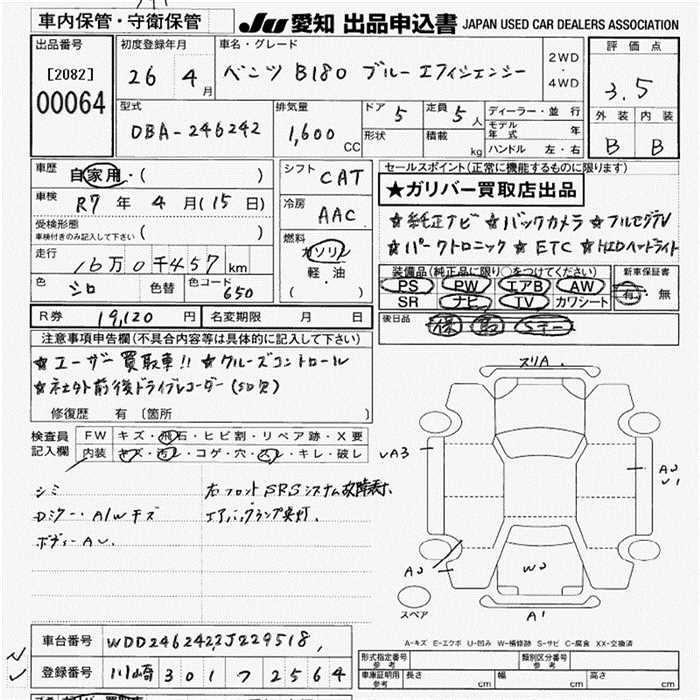 車内保管・守衛保管
JU 愛知 出品申込書 JAPAN USED CAR DEALERS ASSOCIATION
出品番号
[2082]
00064
初度登録年月
26 4 月
車名・グレード
ベンツ B180 ブルーエフィシェンシー
2WD
・
4WD
評価点
3.5
外装 内装
B B
型式
DBA-246242
排気量
1,600 CC
ドア 5
形状
定員 5 人
積載 kg
ディーラー・並行
モデル年式 年
ハンドル 左・右
車歴
自家用・( )
車検
R7 年 4 月(15 日)
受検形態
車検付きのみ記入して下さい ( )
走行
16万0千457 km
色 シロ 色替 色コード 650
シフト CAT
冷房 AAC
燃料
ガソリン
軽・油
( )
セールスポイント(正常に機能するものに限ります)
★ガリバー買取店出品
☆純正ナビ ☆バックカメラ ☆フルセグTV
☆パークトロニック ☆ETC ☆HIDヘッドライト
装備品(純正品に限り○をつけてください)
PS PW エアB AW
SR ナビ TV カワシート
新車保証書
有・無
R券 19,120 円 名変期限 月 日
後日品
保 取 Sキー
注意事項申告欄(不具合内容等は具体的に記入して下さい)
☆ユーザー買取車!! ☆クルーズコントロール
☆社外前後ドライブレコーダー(SD欠)
修復歴 有 〔箇所 〕
検査員
記入欄
FW キズ・飛石・ヒビ割・リペア跡・X要
内装 キズ・汚レ・コゲ・穴・スレ・キレ・破レ
シミ
Dミラー・A/Wキズ
ボディーAU.
右フロントSRSシステム故障表示.
エアバッグランプ点灯.
スリA.
UA3
AU
U1
AU
WU
A1
スペア
A-キズ E-エクボ U-凹み W-補修跡 S-サビ C-腐食 XX-交換済
車台番号 WDD2462422J229518
登録番号 川崎 301 フ 2564
形式指定番号
参考
類別区分番号
参考
車庫証明用
参考
長さ cm 幅 cm 高さ cm